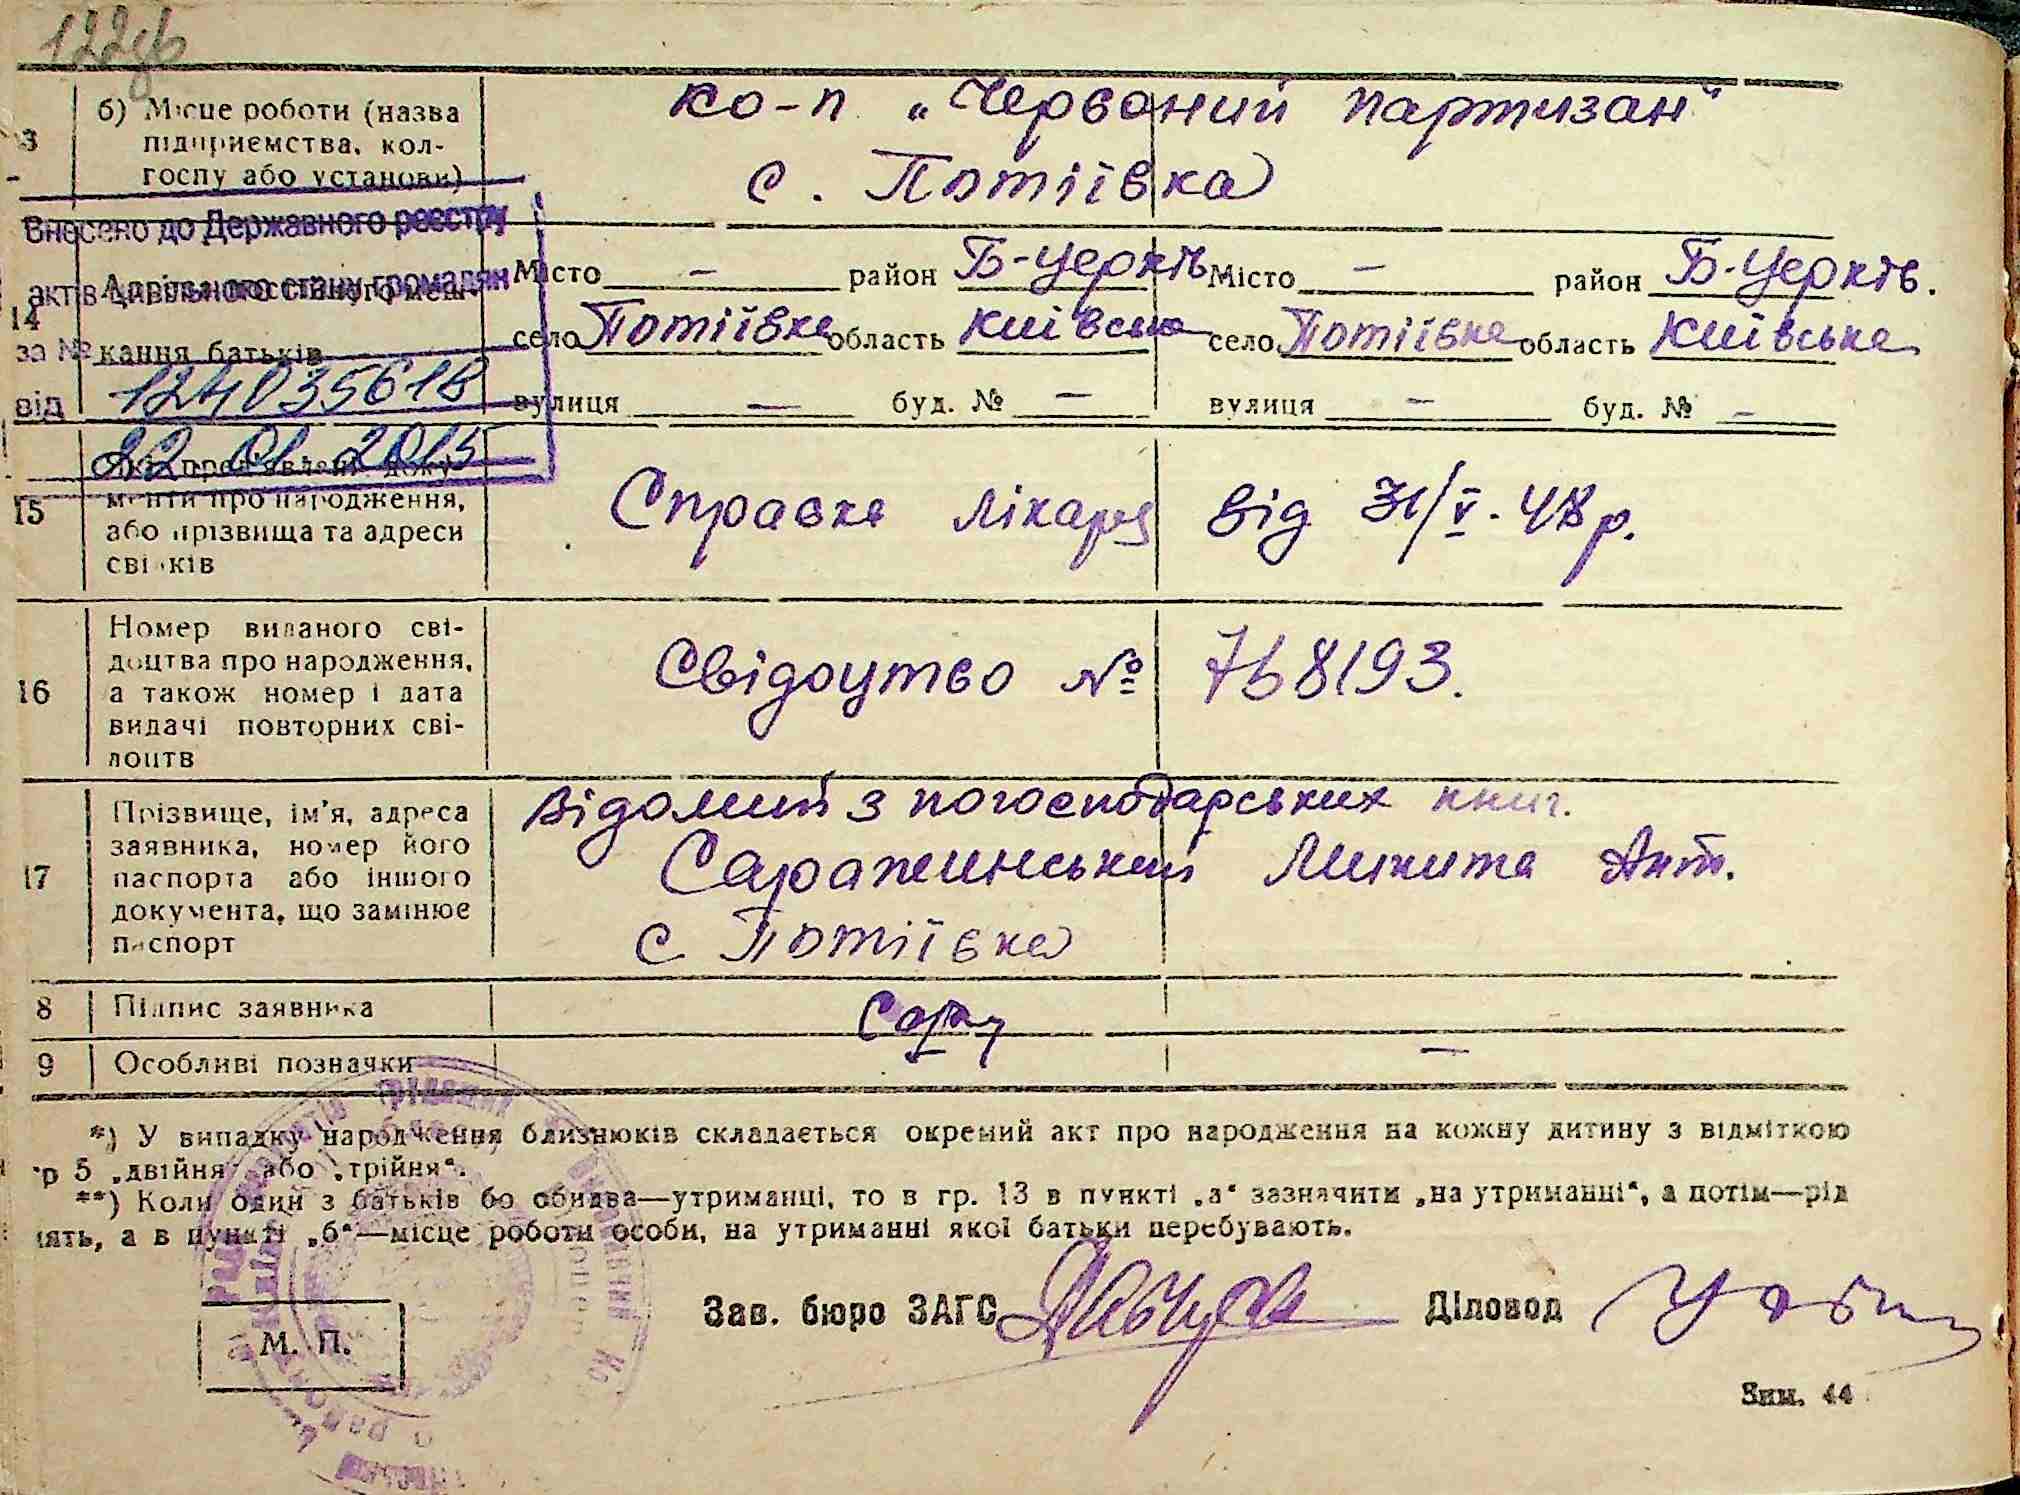 122зв
13 б) Місце роботи (назва підприємства, колгоспу або установи)
ко-п "Червоний партизан"
с. Потіївка
Внесено до Державного реєстру
актів цивільного стану громадян
за № 124035618
від 22 01 2015
14 Адреса постійного мешкання батьків
Місто — район Б-Церків Місто — район Б-Церків.
село Потіївка область Київська село Потіївка область Київська
вулиця — буд. № — вулиця — буд. № —
15 Які пред'явлені документи про народження, або прізвища та адреси свідків
Справка лікаря від 31/V-48 р.
16 Номер виданого свідоцтва про народження, а також номер і дата видачі повторних свідоцтв
Свідоцтво № 768193.
17 Прізвище, ім'я, адреса заявника, номер його паспорта або іншого документа, що замінює паспорт
Відомий з погосподарських книг.
Саражинський Микита Ант.
с. Потіївка
8 Підпис заявника
9 Особливі позначки —
*) У випадку народження близнюків складається окремий акт про народження на кожну дитину з відміткою
гр 5 „двійня" або „трійня".
**) Коли один з батьків бо обидва—утриманці, то в гр. 13 в пункті „а" зазначити „на утриманні", а потім—рід
нять, а в пункті „б"—місце роботи особи, на утриманні якої батьки перебувають.
Зав. бюро ЗАГС Діловод
М. П.
Зим. 44